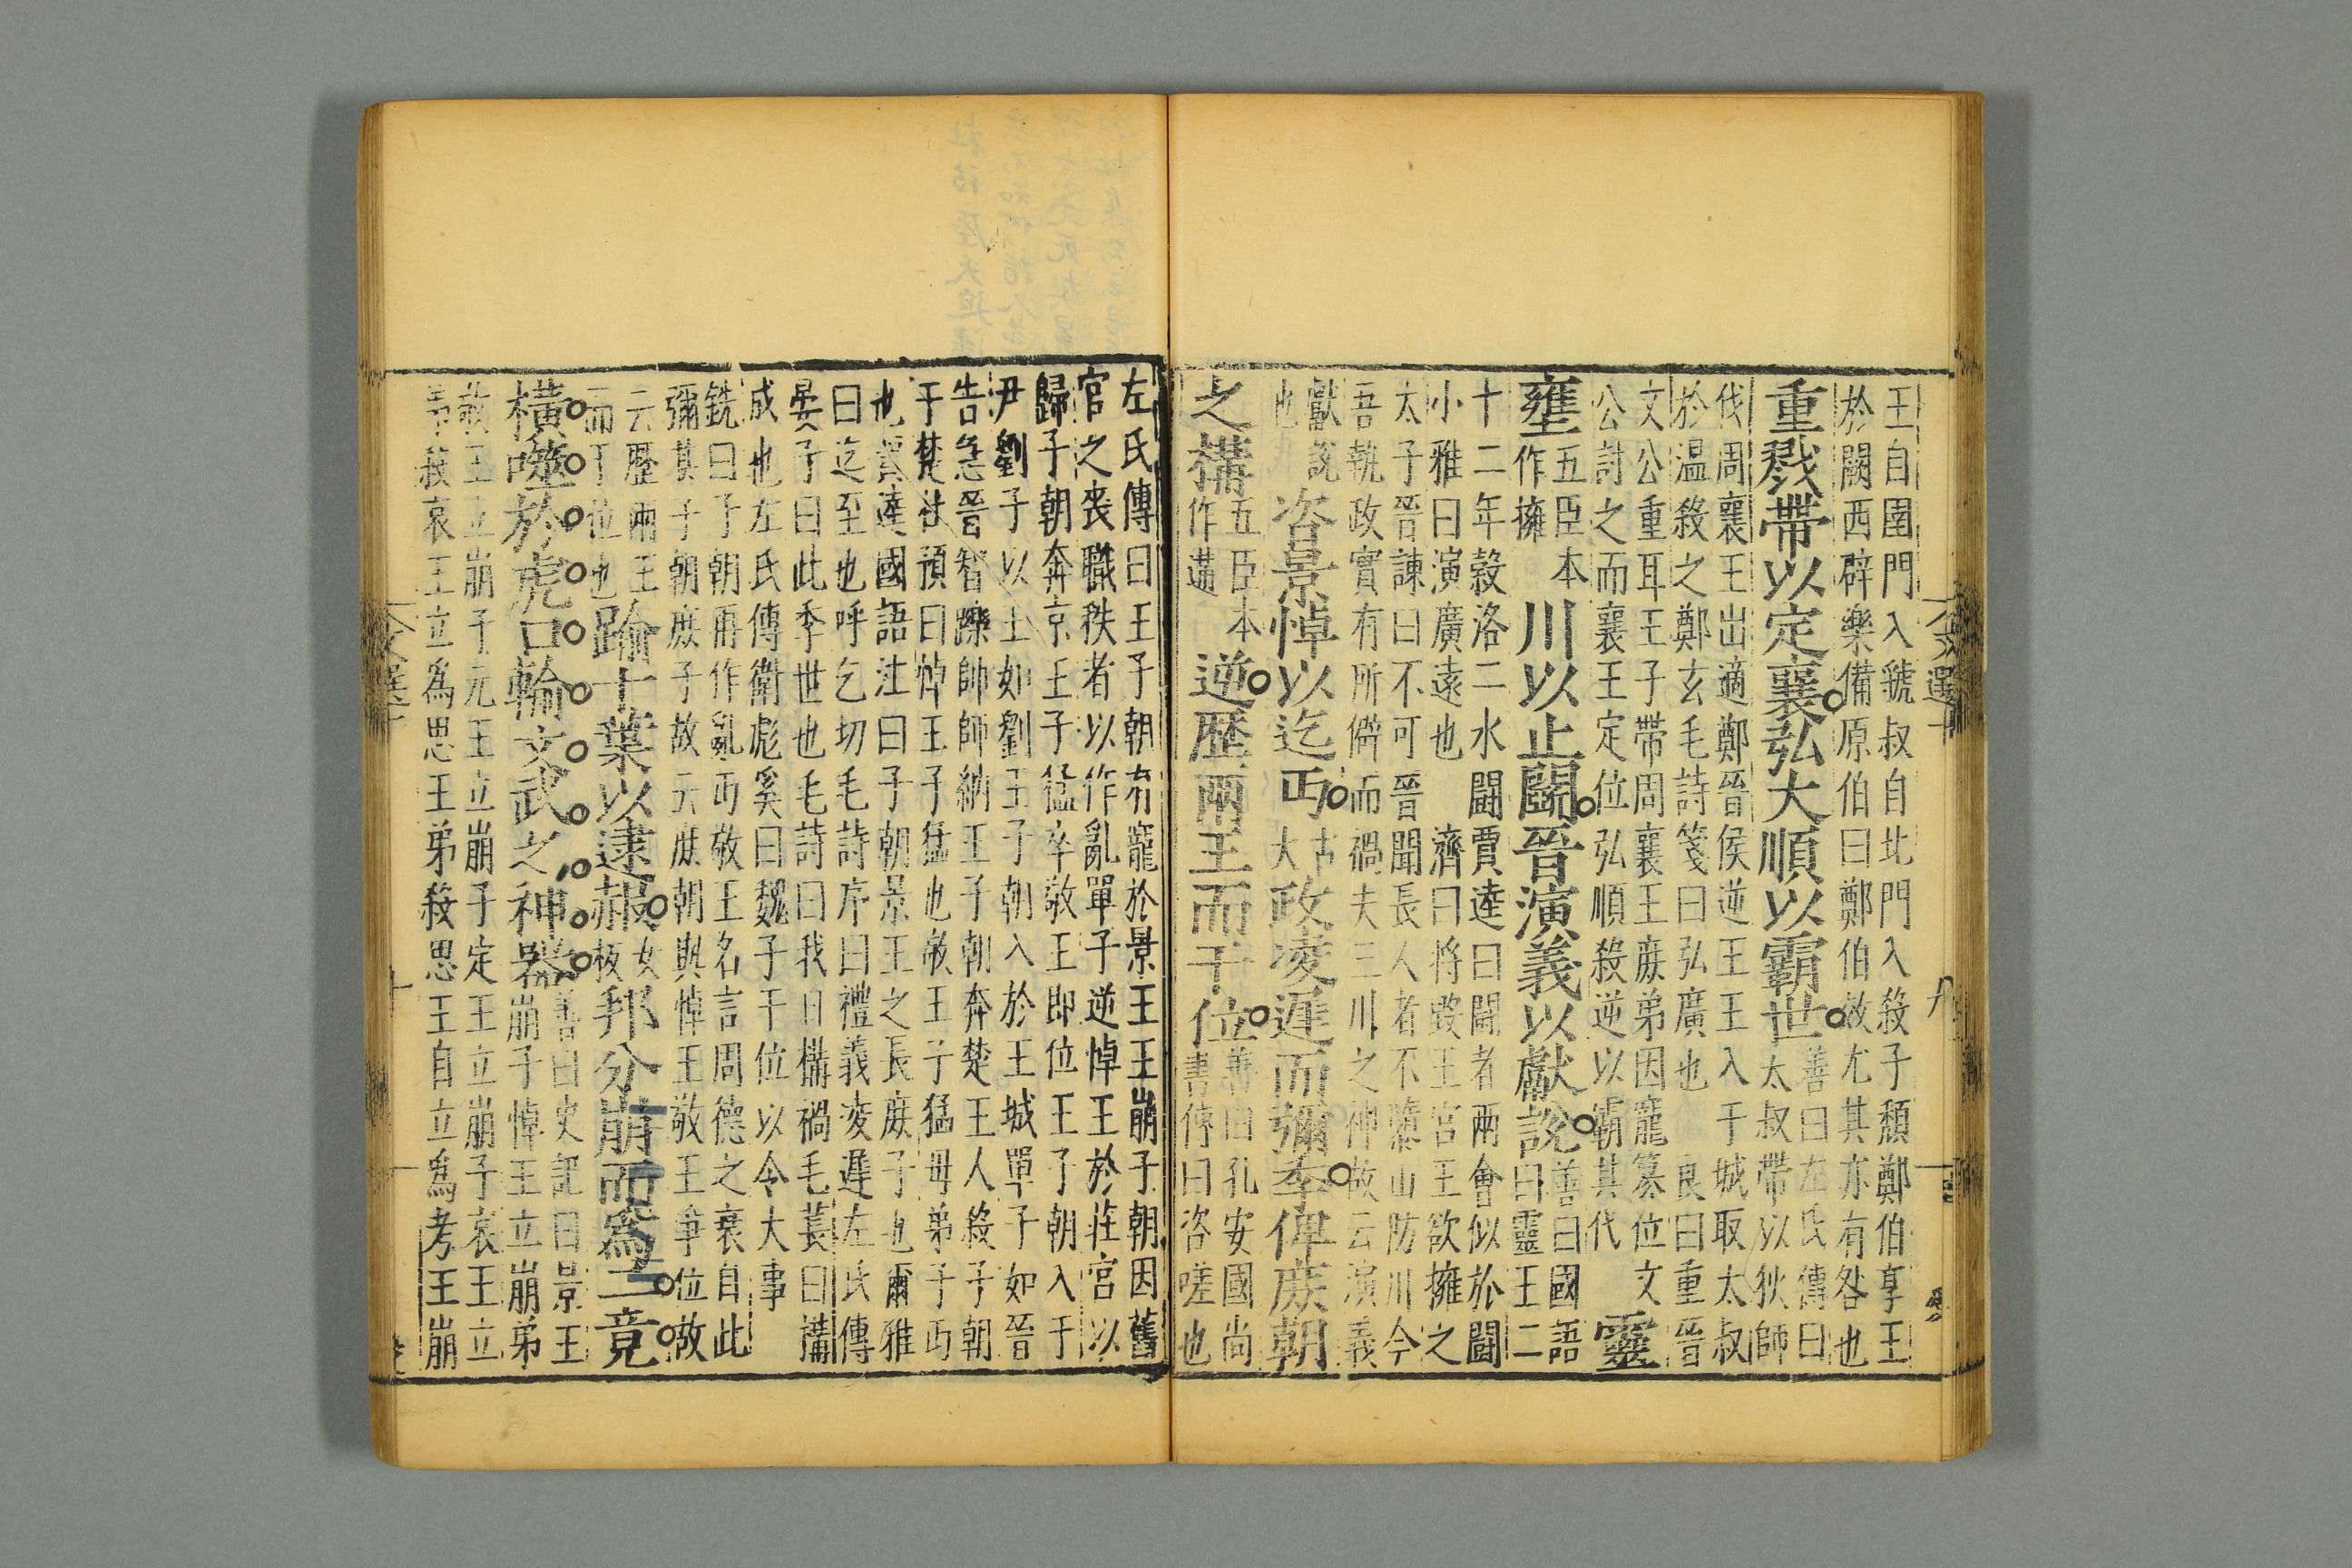 王自圉門入虢叔自北門入殺子頽鄭伯享王
於闕西辟樂備原伯曰鄭伯效尤其亦有咎也
重戮帶以定襄弘大順以霸世
善曰左氏傳曰
太叔帶以狄師
伐周襄王出適鄭晉侯逆王王入于城取太叔
於温殺之鄭玄毛詩箋曰弘廣也 良曰重晉
文公重耳王子帶周襄王庶弟因寵篡位文
公討之而襄王定位弘順殺逆以霸其代
靈
壅
五臣本
作擁
川以止鬭晉演義以獻說
善曰國語
曰靈王二
十二年穀洛二水鬭賈逵曰鬭者兩會似於鬭
小雅曰演廣遠也 濟曰將毀王宮王欲擁之
太子晉諫曰不可晉聞長人者不隳山防川今
吾執政實有所僻而禍夫三川之神故云演義
獻說
也
咨景悼以迄丏
古
大
政凌遲而彌季俾庶朝
之構
五臣本
作遘
逆歷兩王而干位
善曰孔安國尚
書傳曰咨嗟也
左氏傳曰王子朝有寵於景王王崩子朝因舊
官之喪職秩者以作亂單子逆悼王於莊宮以
歸子朝奔京王子猛卒敬王即位王子朝入于
尹劉子以王如劉王子朝入於王城單子如晉
告急晉智躒帥師納王子朝奔楚王人殺子朝
于楚杜預曰悼王子猛也敬王子猛母弟子丏
也賈逵國語注曰子朝景王之長庶子也爾雅
曰迄至也呼乞切毛詩序曰禮義凌遲左氏傳
晏子曰此季世也毛詩曰我日構禍毛萇曰構
成也左氏傳衛彪奚曰魏子干位以令大事
銑曰子朝再作亂丏敬王名言周德之衰自此
彌其子朝庶子故云庶朝與悼王敬王爭位故
云歷兩王
而干位也
踰十葉以逮赧
女
板
邦分崩而為二竟
橫噬於虎口輸文武之神器
善曰史記曰景王
崩子悼王立崩弟
敬王立崩子元王立崩子定王立崩子哀王立
弟殺哀王立為思王弟殺思王自立為考王崩
文選十
九
文選十
十